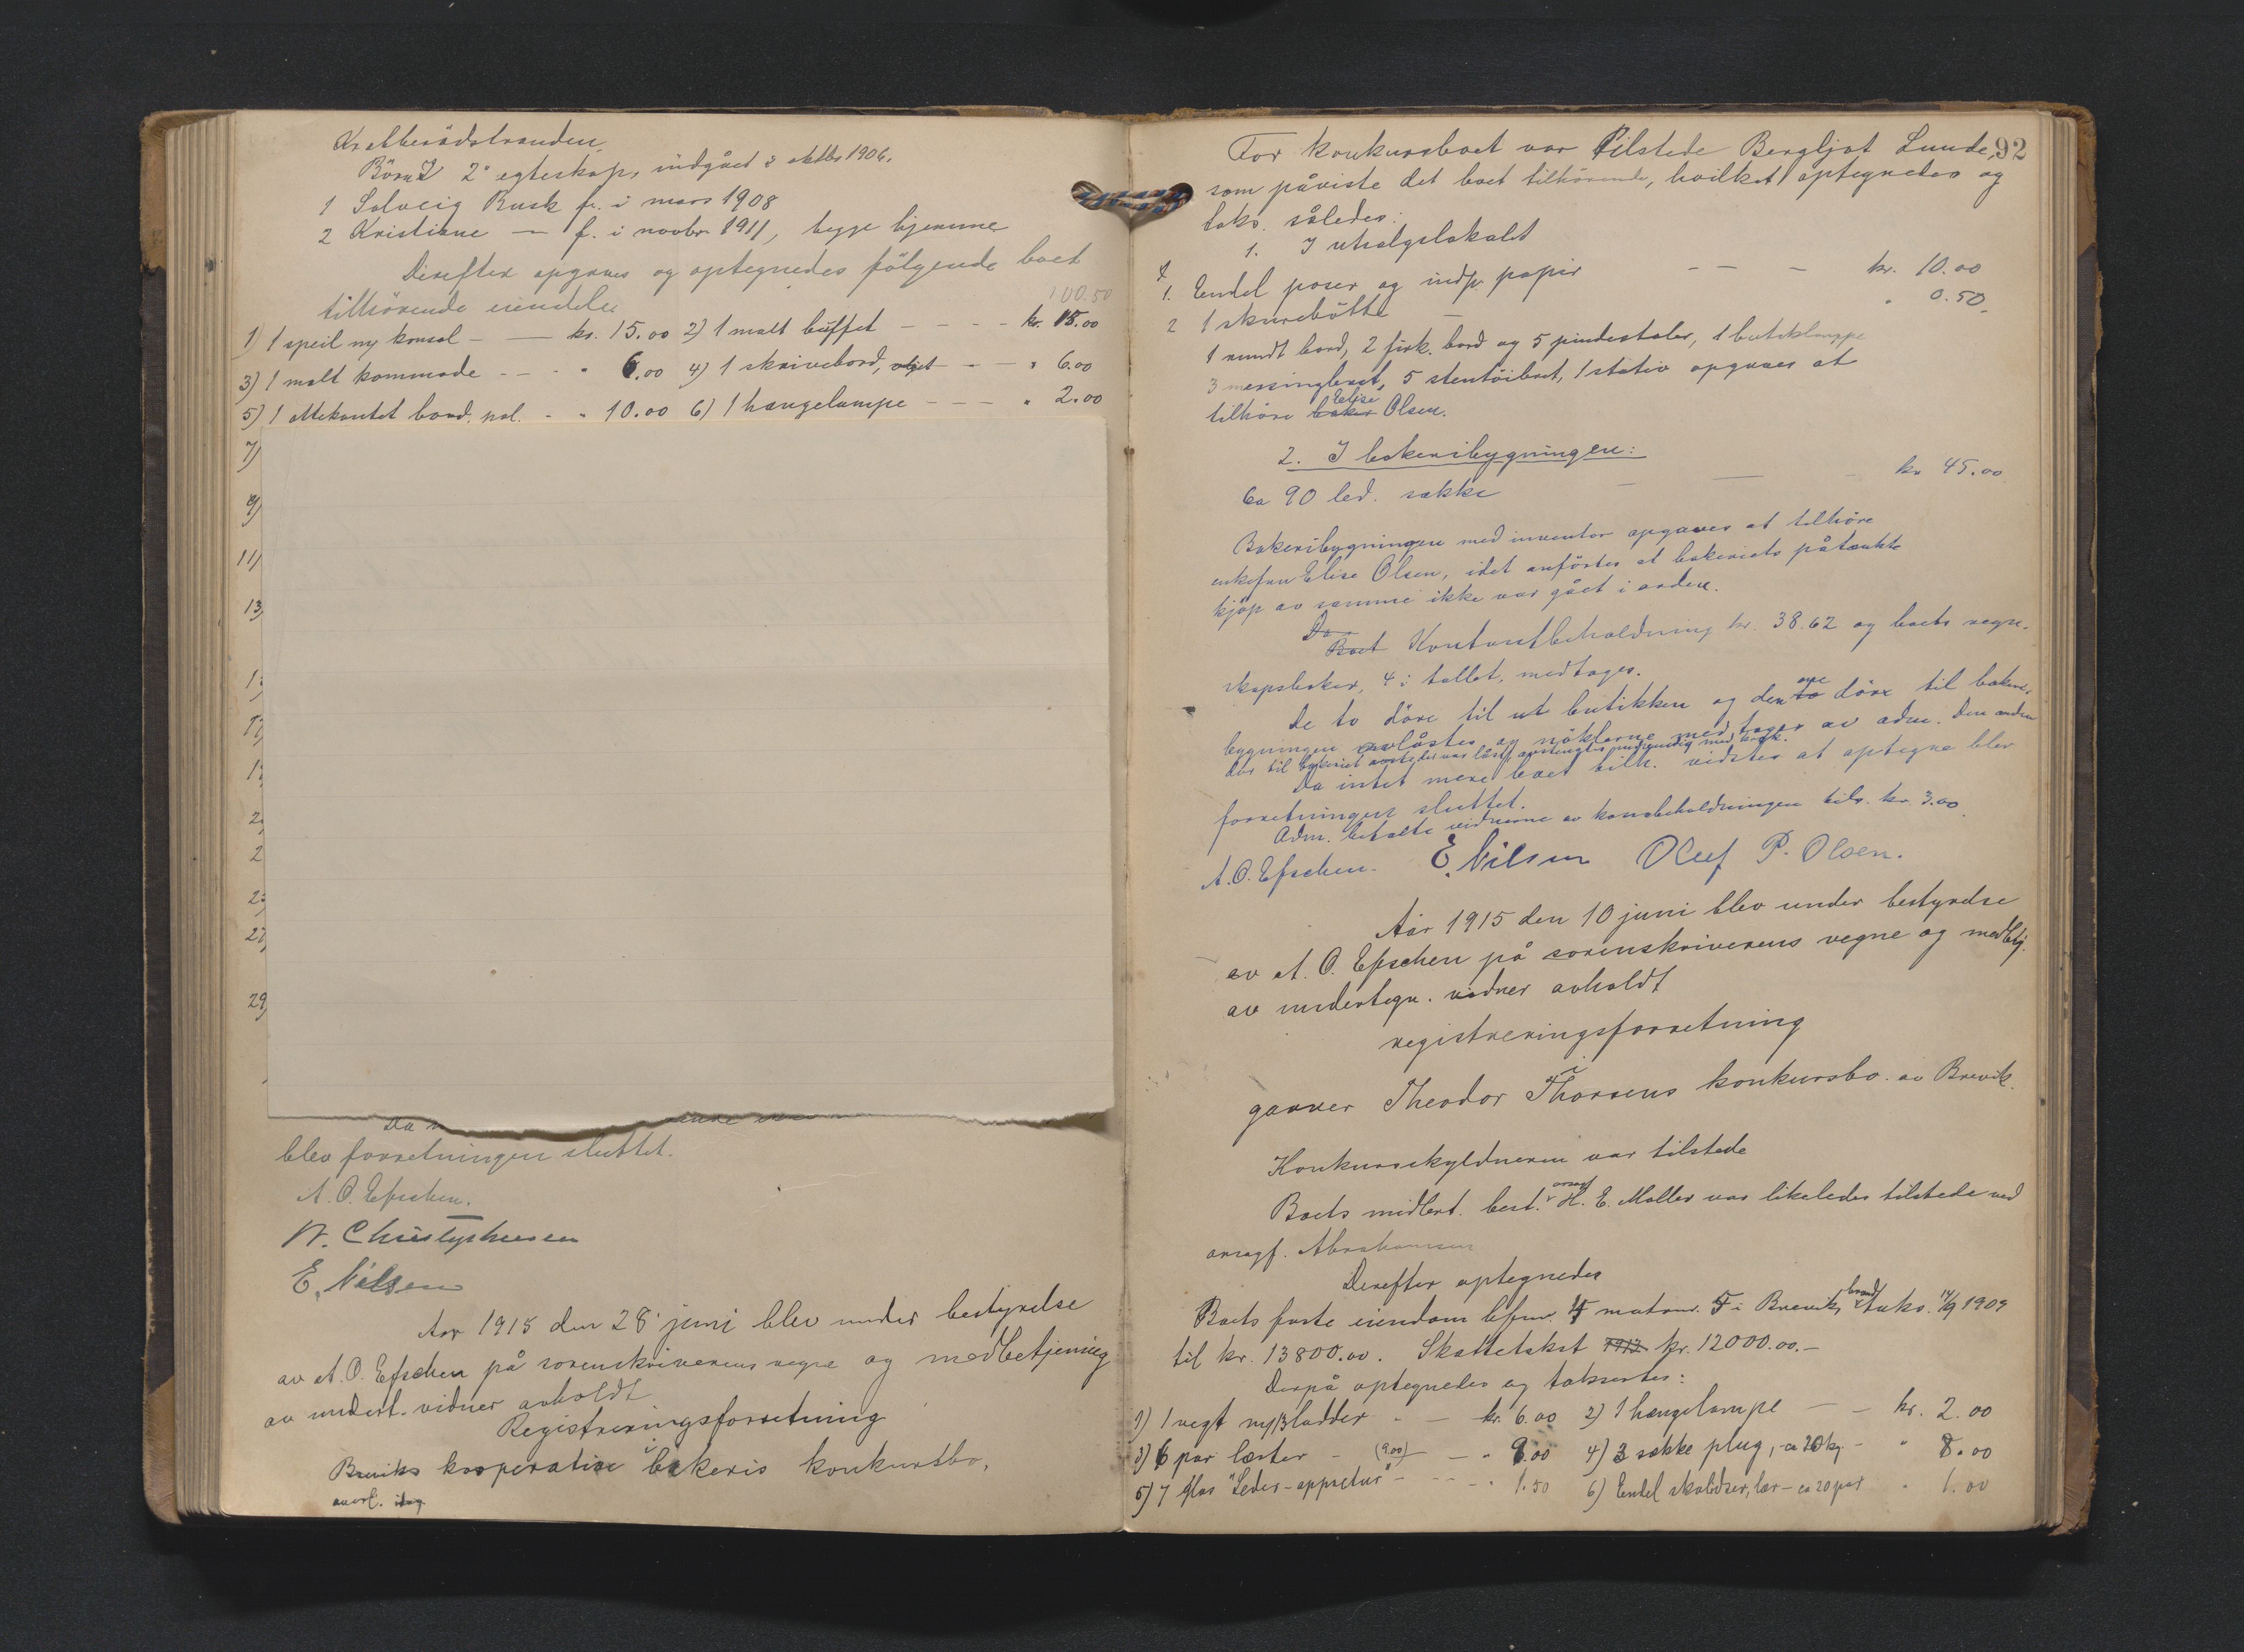 Børn I 2° egteskap, indgået 3 oktbr 1906.
1 Solveig Rusk f. i mars 1908
2 Kristiane — f. i novbr 1911, begge hjemme
Derefter opgaves og optegnedes følgende boet
tilhørende eiendele
100.50
1) 1 speil m/ konsol - — kr. 15.00 2) 1 malt buffet - - - - kr. 15.00
3) 1 malt kommode - - - " 6.00 4) 1 skrivebord, - - " 6.00
5) 1 ottekantet bord, pol. - " 10.00 6) 1 hængelampe - - - " 2.00
7)
9)
11)
13
29)
Da
blev forretningen sluttet.
A. O. Efschen.
E. Nilsen
Aar 1915 den 28 juni blev under bestyrelse
av A. O. Efschen på sorenskriverens vegne og medbetjening
av undert. vidner avholdt
Registreringsforretning
i
Breviks kooperative bakeris konkursbo,
92
For konkursboet var tilstede Bergljot Lunde,
som påviste det boet tilhørende, hvilket optegnedes og
taks. således:
1. I utsalgslokalet
1. Endel poser og indp. papir - - - kr. 10.00
2 1 skurebøtte — " 0.50
1 rundt bord, 2 firk. bord og 5 pindestoler, 1 butiklampe
3 messingbret, 5 stentøibret, 1 stativ opgaves at
Elise
tilhøre baker Olsen.
2. I bakeribygningen:
Ca 90 led. sække — — kr 45.00
Bakeribygningen med inventar opgaves at tilhøre
enkefru Elise Olsen, idet anførtes at bakeriets påtænkte
kjøp av samme ikke var gået i orden.
Da
Boet Kontantbeholdning kr. 38.62 og boets regn-
skapsbøker, 4 i tallet, medtages.
ene
De to døre til ut butikken og den to døre til bakeri-
bygningen avlåstes og nøklerne medtages av adm. Den anden
dør til bakeriet
Da intet mere boet tilh. vidstes at optegne blev
forretningen sluttet.
Adm. betalte vidnerne av kassabeholdningen tils. kr. 3.00
A. O. Efschen. E. Nilsen Oluf P. Olsen.
Aar 1915 den 10 juni blev under bestyrelse
av A. O. Efschen på sorenskriverens vegne og medbetj.
av undertegn. vidner avholdt
registreringsforretning
i
garver Theodor Thorsens konkursbo av Brevik.
Konkursskyldneren var tilstede
Boets midlert. best. H. E. Møller var likeledes tilstede ved
Abrahamsen
Derefter optegnedes
Boets faste eiendom matnr. 5 i Brevik, brandtaks. 14/9 1909
til kr. 13800.00. Skattetakst 1912 kr. 12000.00.-
Derpå optegnedes og taksertes:
1) 1 vegt m/3 lodder - — kr. 6.00 2) 1 hængelampe — - kr. 2.00
3) 6 par læster - (9.00) — " 9.00 4) 3 sække plug, ca 20 kg - " 8.00
5) 7 glas "Leder-appretur" - - - - " 1.50 6) Endel skolisser, lær - ca 20 par " 1.00